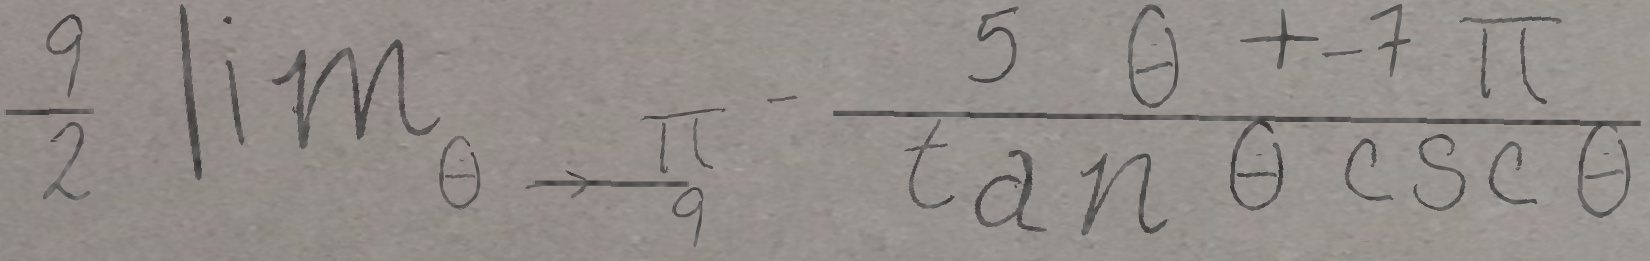 \frac{9}{2} \lim_{\theta \to \frac{\pi}{9}^-} \frac{5 \theta + -7 \pi}{\tan \theta \csc \theta}